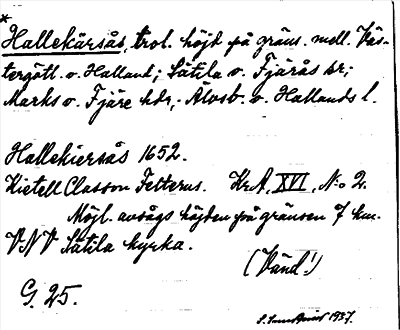 *
Hallekärsås, trol. höjd på gräns. mell. Väs-
tergötl. o. Halland; Sätila o. Fjärås sr;
Marks o. Fjäre hdr, Älvsb. o. Hallands l.
Hallekiersås 1652.
Kietell Classon Felterus. Kr A, XVI, No 2.
Möjl. avsågs höjden på gränsen 7 km.
VNV Sätila kyrka.
(Vänd!)
G. 25.
1937.